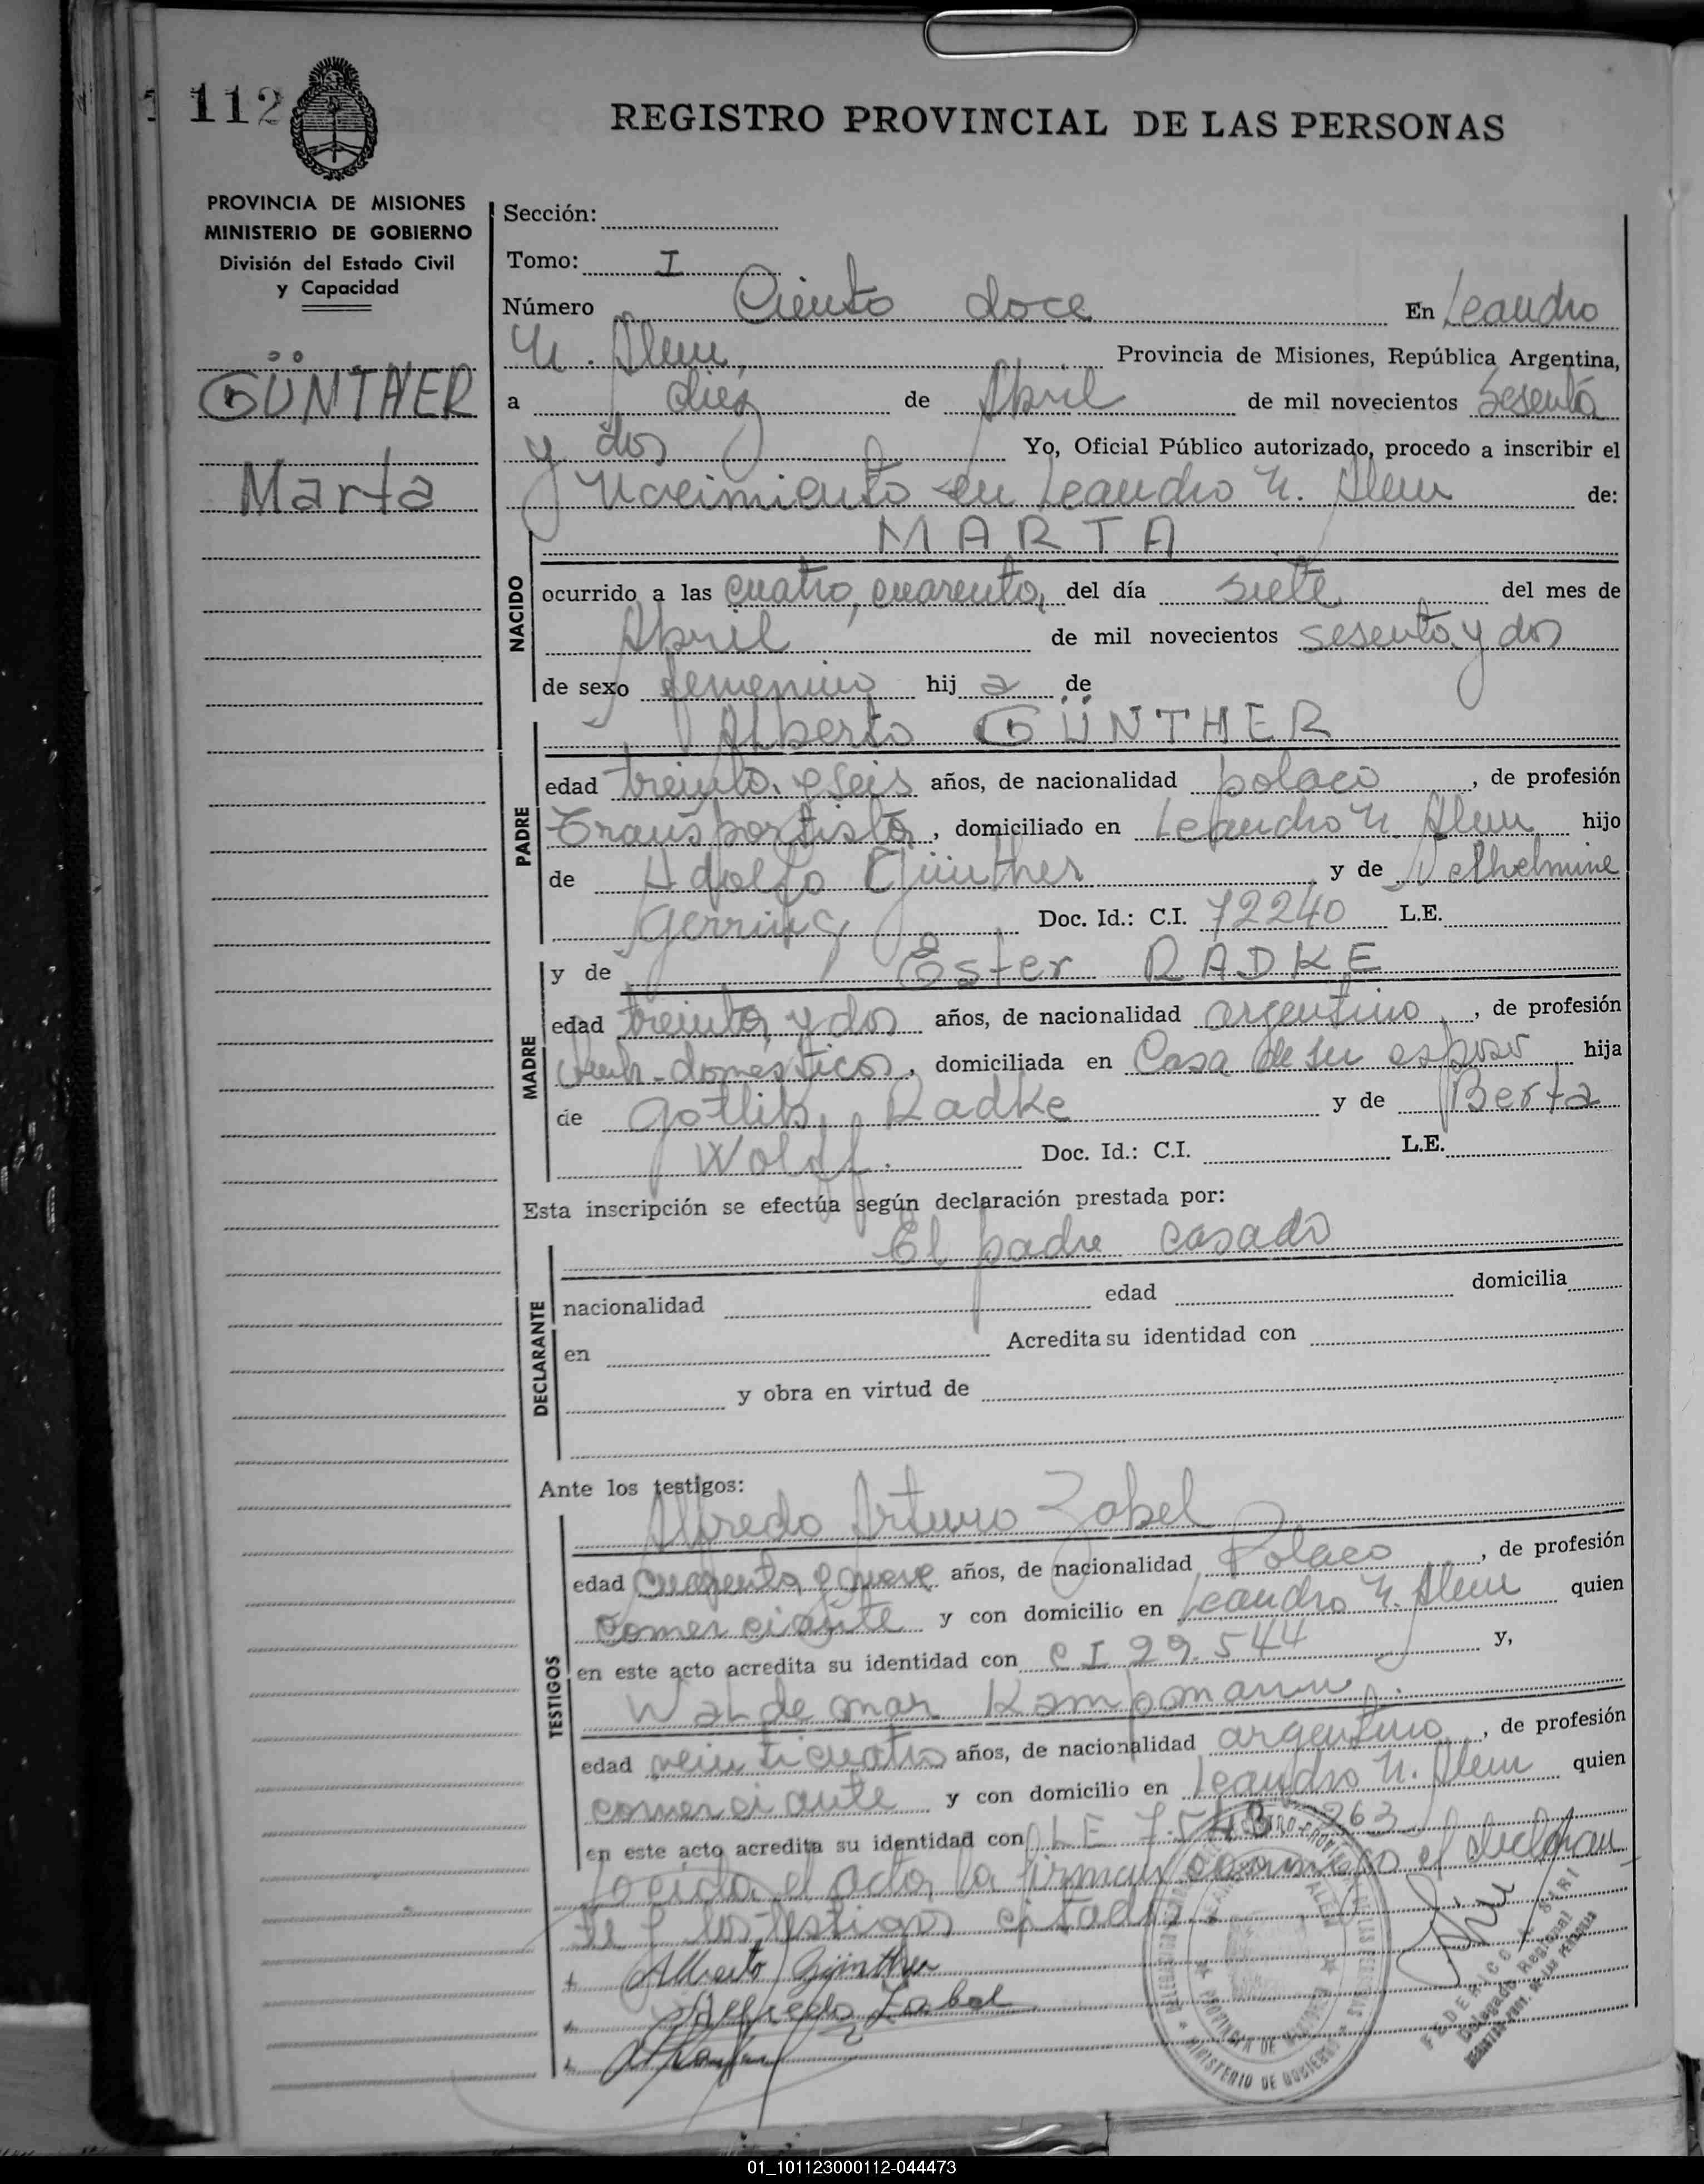 112
REGISTRO PROVINCIAL DE LAS PERSONAS
PROVINCIA DE MISIONES
MINISTERIO DE GOBIERNO
División del Estado Civil
y Capacidad
GÜNTHER
Marta
Sección:
Tomo: I
Número Ciento doce En Leandro
N. Alem, Provincia de Misiones, República Argentina,
a diez de Abril de mil novecientos sesenta
y dos Yo, Oficial Público autorizado, procedo a inscribir el
Nacimiento en Leandro N. Alem de:
MARTA
NACIDO
ocurrido a las cuatro, cuarenta, del día siete del mes de
Abril de mil novecientos sesenta y dos
de sexo femenino hija de
Alberto GÜNTHER
PADRE
edad treinta y seis años, de nacionalidad polaco, de profesión
Transportista, domiciliado en Leandro N. Alem hijo
de Adolfo Günther y de Welhelmine
Gerring Doc. Id.: C.I. 72240 L.E.
y de Ester RADKE
MADRE
edad treinta y dos años, de nacionalidad argentina, de profesión
domésticos, domiciliada en Casa de su esposo hija
de Gotlib Radke y de Berta
Wolff. Doc. Id.: C.I. L.E.
Esta inscripción se efectúa según declaración prestada por:
El padre casado
DECLARANTE
nacionalidad edad domicilia
en Acredita su identidad con
y obra en virtud de
Ante los testigos:
Alfredo Arturo Zabel
TESTIGOS
edad cuarenta y nueve años, de nacionalidad Polaco, de profesión
comerciante y con domicilio en Leandro N. Alem quien
en este acto acredita su identidad con C I 29.544 y,
Waldemar Kampmann.
edad veinticuatro años, de nacionalidad argentino, de profesión
comerciante y con domicilio en Leandro N. Alem quien
en este acto acredita su identidad con LE 7.543.263
Leída el acta, la firman conmigo el declaran
te y los testigos citados.
Alberto Günther
Alfredo Zabel
PROVINCIA DE MISIONES
MINISTERIO DE GOBIERNO
FEDERICO A. SIRI
Delegado Regional
REGISTRO PROV. DE LAS PERSONAS
01_101123000112-044473